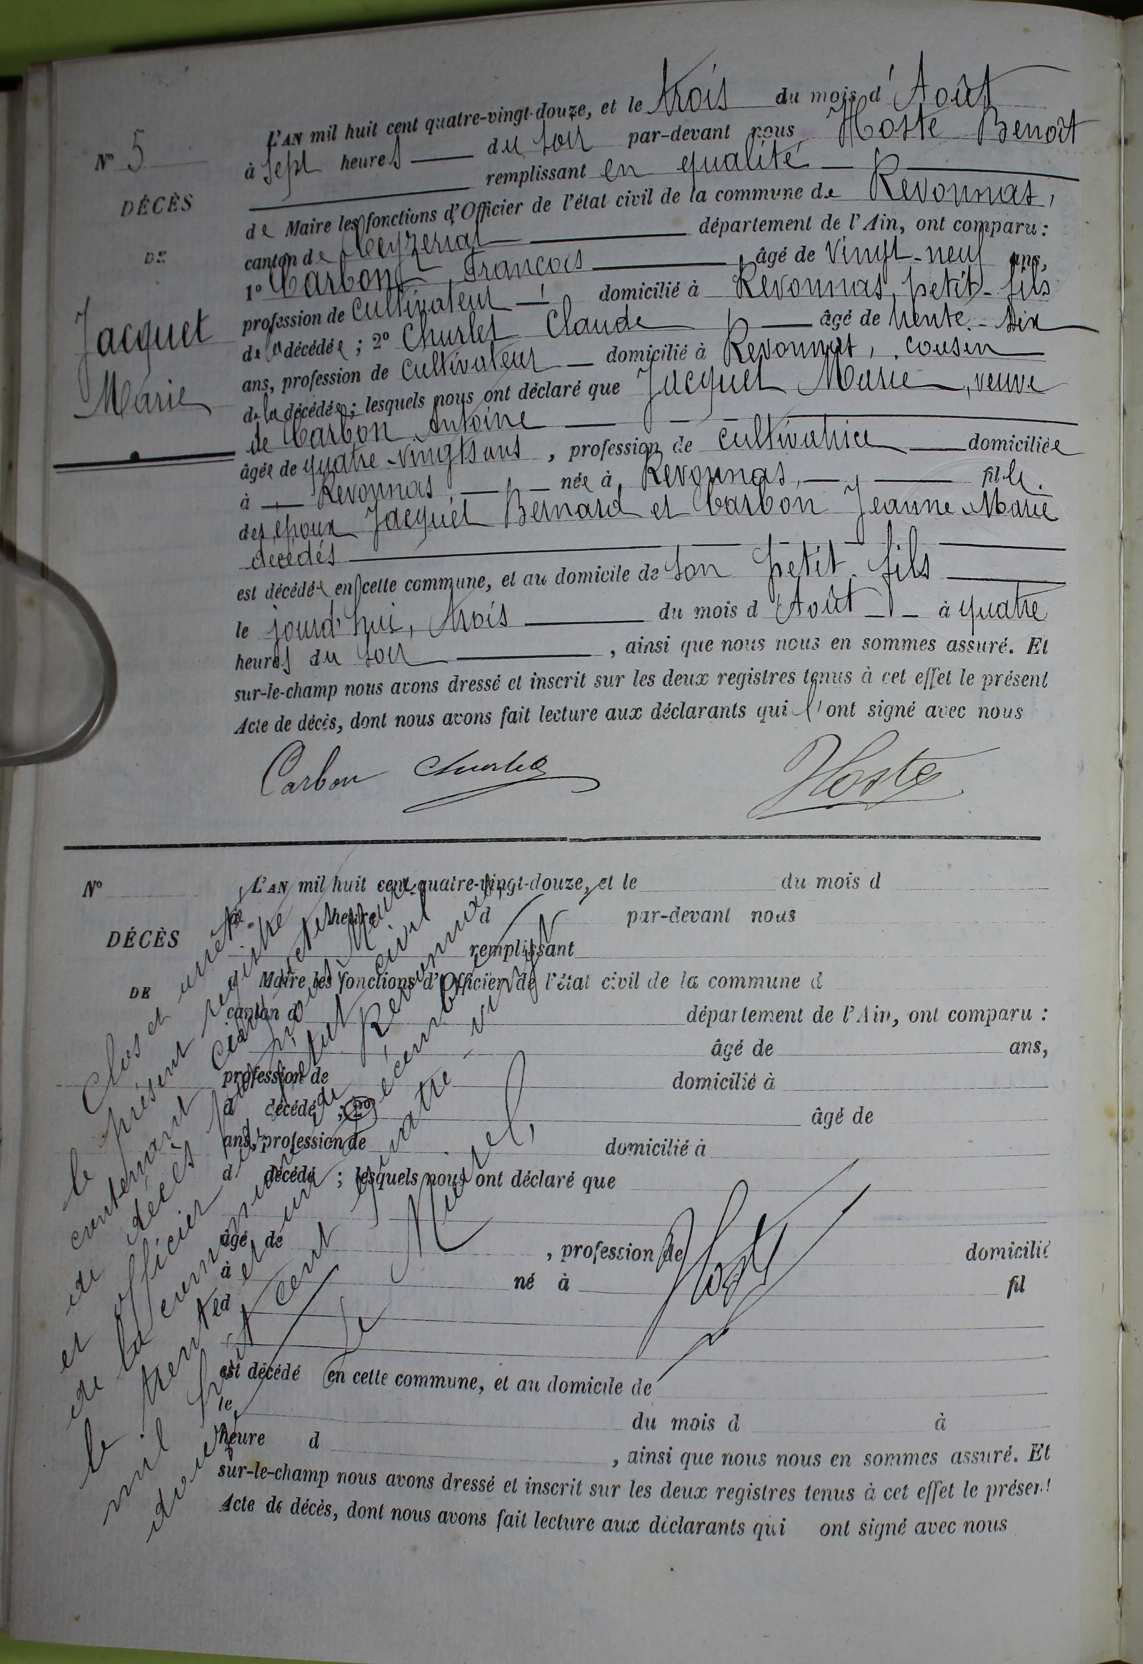 N° 5
DÉCÈS
DE
Jacquet
Marie
L'AN mil huit cent quatre-vingt-douze, et le trois du mois d'Août
à sept heures du soir par-devant nous Hoste Benoît
remplissant en qualité
de Maire les fonctions d'Officier de l'état civil de la commune de Revonnas,
canton de Ceyzériat département de l'Ain, ont comparu :
1° Carbon François âgé de vingt-neuf ans,
profession de cultivateur domicilié à Revonnas, petit-fils
de la décédée ; 2° Churlet Claude âgé de trente-six
ans, profession de cultivateur domicilié à Revonnas, cousin
de la décédée ; lesquels nous ont déclaré que Jacquet Marie, veuve
de Carbon Antoine
âgée de quatre-vingts ans, profession de cultivatrice domiciliée
à Revonnas née à Revonnas, fille
des époux Jacquet Bernard et Carbon Jeanne Marie
décédés
est décédée en cette commune, et au domicile de son petit-fils
le jourd'hui, trois du mois d Août à quatre
heures du soir, ainsi que nous nous en sommes assuré. Et
sur-le-champ nous avons dressé et inscrit sur les deux registres tenus à cet effet le présent
Acte de décès, dont nous avons fait lecture aux déclarants qui l'ont signé avec nous
Carbon Churlet Hoste
N°
DÉCÈS
DE
L'AN mil huit cent quatre-vingt-douze, et le du mois d
à heure d par-devant nous
remplissant
Maire les fonctions d'Officier de l'état civil de la commune d
canton d département de l'Ain, ont comparu :
âgé de ans,
profession de domicilié à
d décédé ; 2° âgé de
ans, profession de domicilié à
d décédé ; lesquels nous ont déclaré que
âgé de , profession de domicilié
à né à fil
d
est décédé en cette commune, et au domicile de
le du mois d à
heure d , ainsi que nous nous en sommes assuré. Et
sur-le-champ nous avons dressé et inscrit sur les deux registres tenus à cet effet le présent
Acte de décès, dont nous avons fait lecture aux déclarants qui ont signé avec nous
Clos et arrêté
le présent registre
contenant cinq actes
de décès par nous Maire
et officier de l'état civil
de la commune de Revonnas,
le trente et un décembre
mil huit cent quatre-vingt
douze
Le Maire,
Hoste